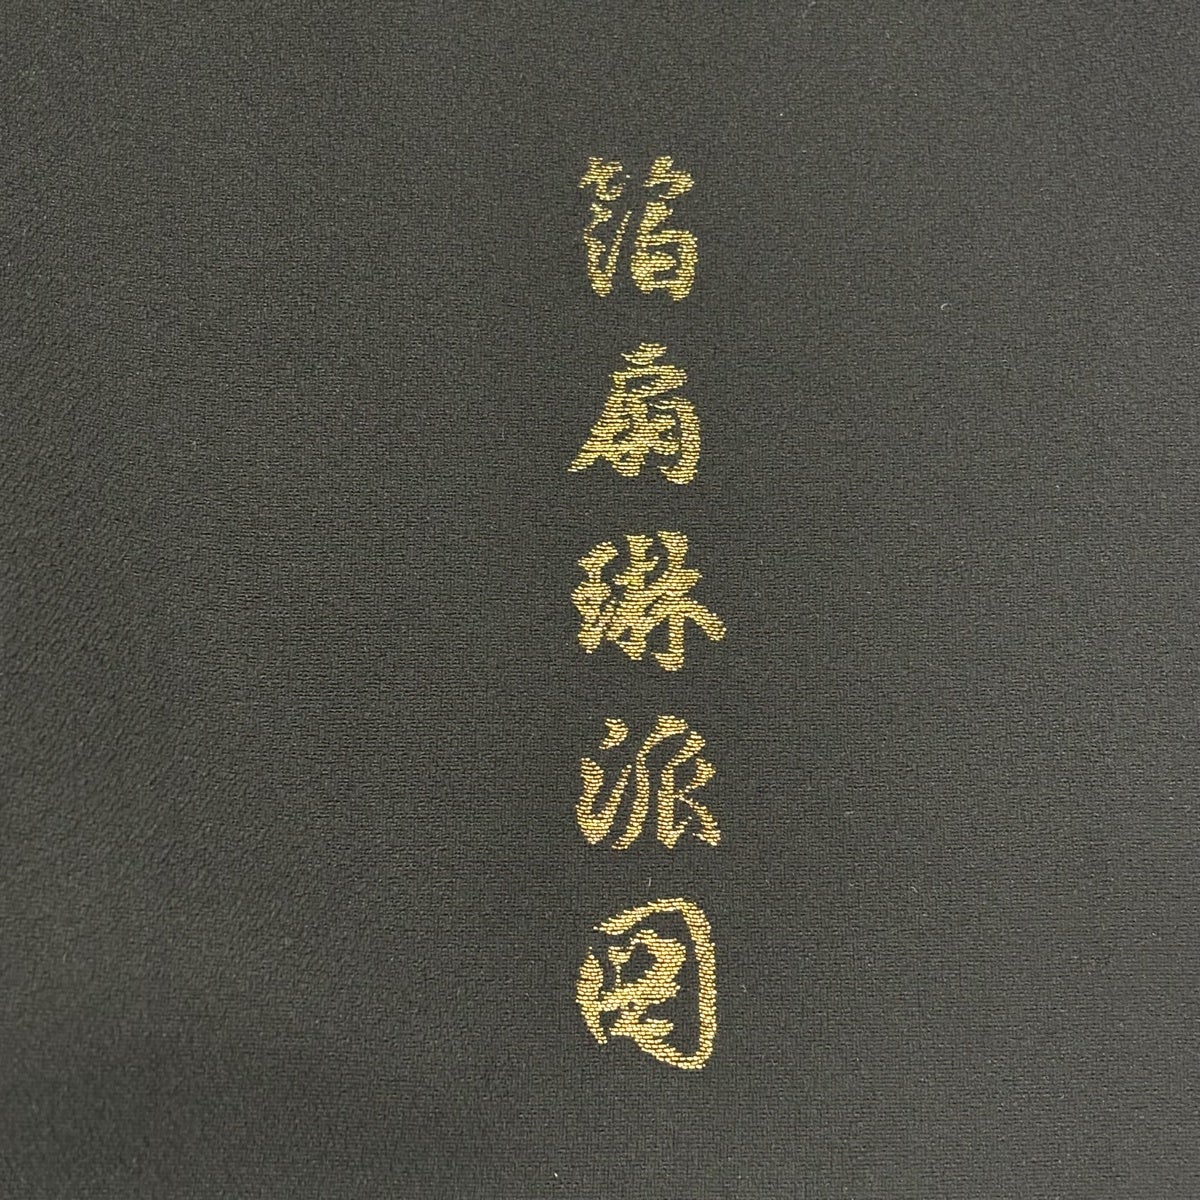 箔扇琳派図